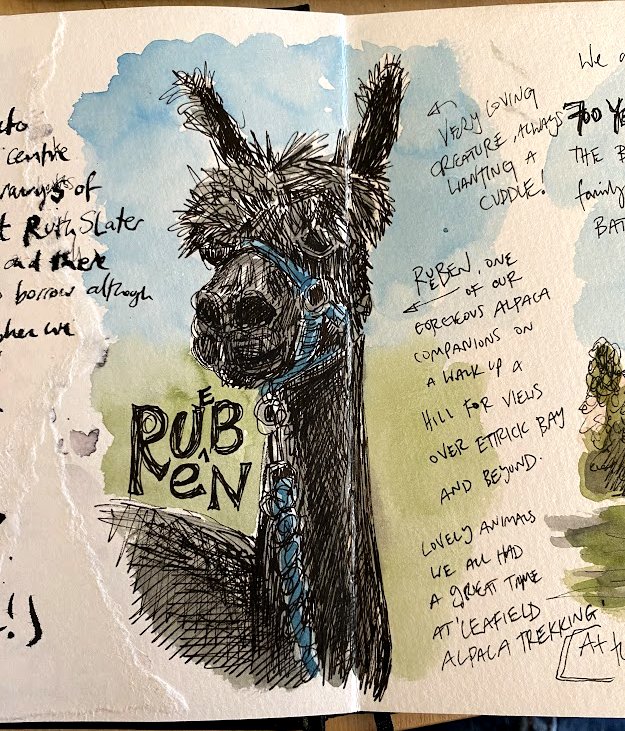 centre
of
Ruth Slater
and there
borrow although
when we
!)
RUEB
eN
VERY LOVING
CREATURE, ALWAYS
WANTING A
CUDDLE!
RUEBEN, ONE
OF OUR
GORGEOUS ALPACA
COMPANIONS ON
A WALK UP A
HILL FOR VIEWS
OVER ETTRICK BAY
AND BEYOND.
LOVELY ANIMALS
WE ALL HAD
A GREAT TIME
AT 'LEAFIELD
ALPACA TREKKING'.
We a
700 Ye
THE B
family
BAT
At